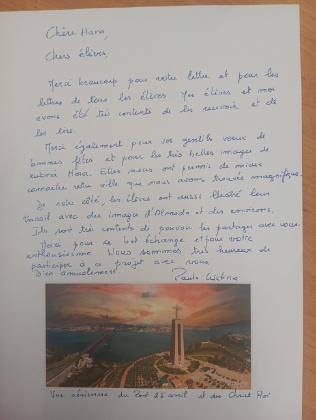 Chère Hana,
Chers élèves,
Merci beaucoup pour votre lettre et pour les
lettres de tous les élèves. Mes élèves et moi
avons été très contents de les recevoir et de
les lire.
Merci également pour vos gentils voeux de
bonnes fêtes et pour les très belles images de
Hora. Elles nous ont permis de mieux
connaître votre ville que nous avons trouvée magnifique.
De notre côté, les élèves ont aussi illustré leur
travail avec des images d'Almada et des environs.
Ils sont très contents de pouvoir les partager avec vous.
Merci pour ce bel échange et pour votre
enthousiasme. Nous sommes très heureux de
participer à ce projet avec vous.
Bien amicalement
Paula
Vue aérienne du Pont 25 avril et du Christ Roi